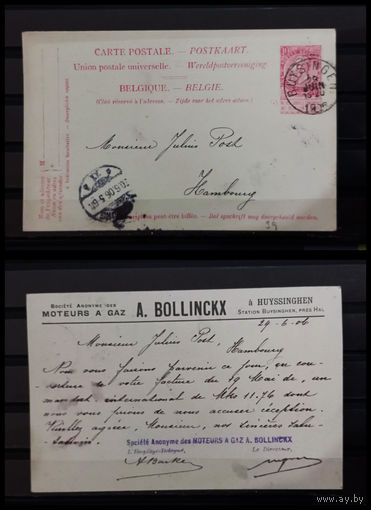 CARTE POSTALE. — POSTKAART.
Union postale universelle. — Wereldpostvereeniging.
BELGIQUE. — BELGIE.
(Côté réservé à l'adresse. — Zijde voor het adres alleen.)
BUYSINGEN
29
JUIN
Monsieur Julius Post
Hambourg
30.6.06
description peut être biffée. — Dat opschrift mag doorgehaald worden.
39
SOCIÉTÉ ANONYME DES
MOTEURS A GAZ A. BOLLINCKX
à HUYSSINGHEN
STATION BUYSINGHEN, PRÈS HAL
29-6-06
Monsieur Julius Post,
Hambourg
Nous vous faisons parvenir ce jour, en cou-
verture de votre facture du 19 Mai de, un
mandat international de Mks 11.76 dont
nous vous prions de nous accuser réception.
Veuillez agréer, Monsieur, nos sincères salu-
tations.
Société Anonyme des MOTEURS A GAZ A. BOLLINCKX
Le Directeur,
ay.by
http://www.ay.by